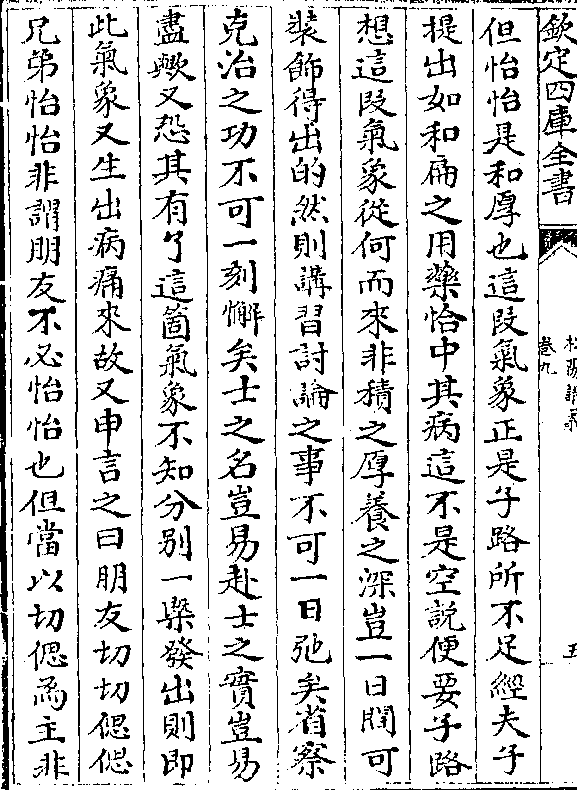 欽定四庫全書
松陽講義
卷九
五
但怡怡是和厚也這段氣象正是子路所不足經夫子
提出如和扁之用藥恰中其病這不是空説便要子路
想這段氣象從何而來非積之厚養之深豈一日間可
裝飾得出的然則講習討論之事不可一日弛矣省察
克治之功不可一刻懈矣士之名豈易赴士之實豈易
盡歟又恐其有了這箇氣象不知分别一槩發出則即
此氣象又生出病痛來故又申言之曰朋友切切偲偲
兄弟怡怡非謂朋友不必怡怡也但當以切偲為主非